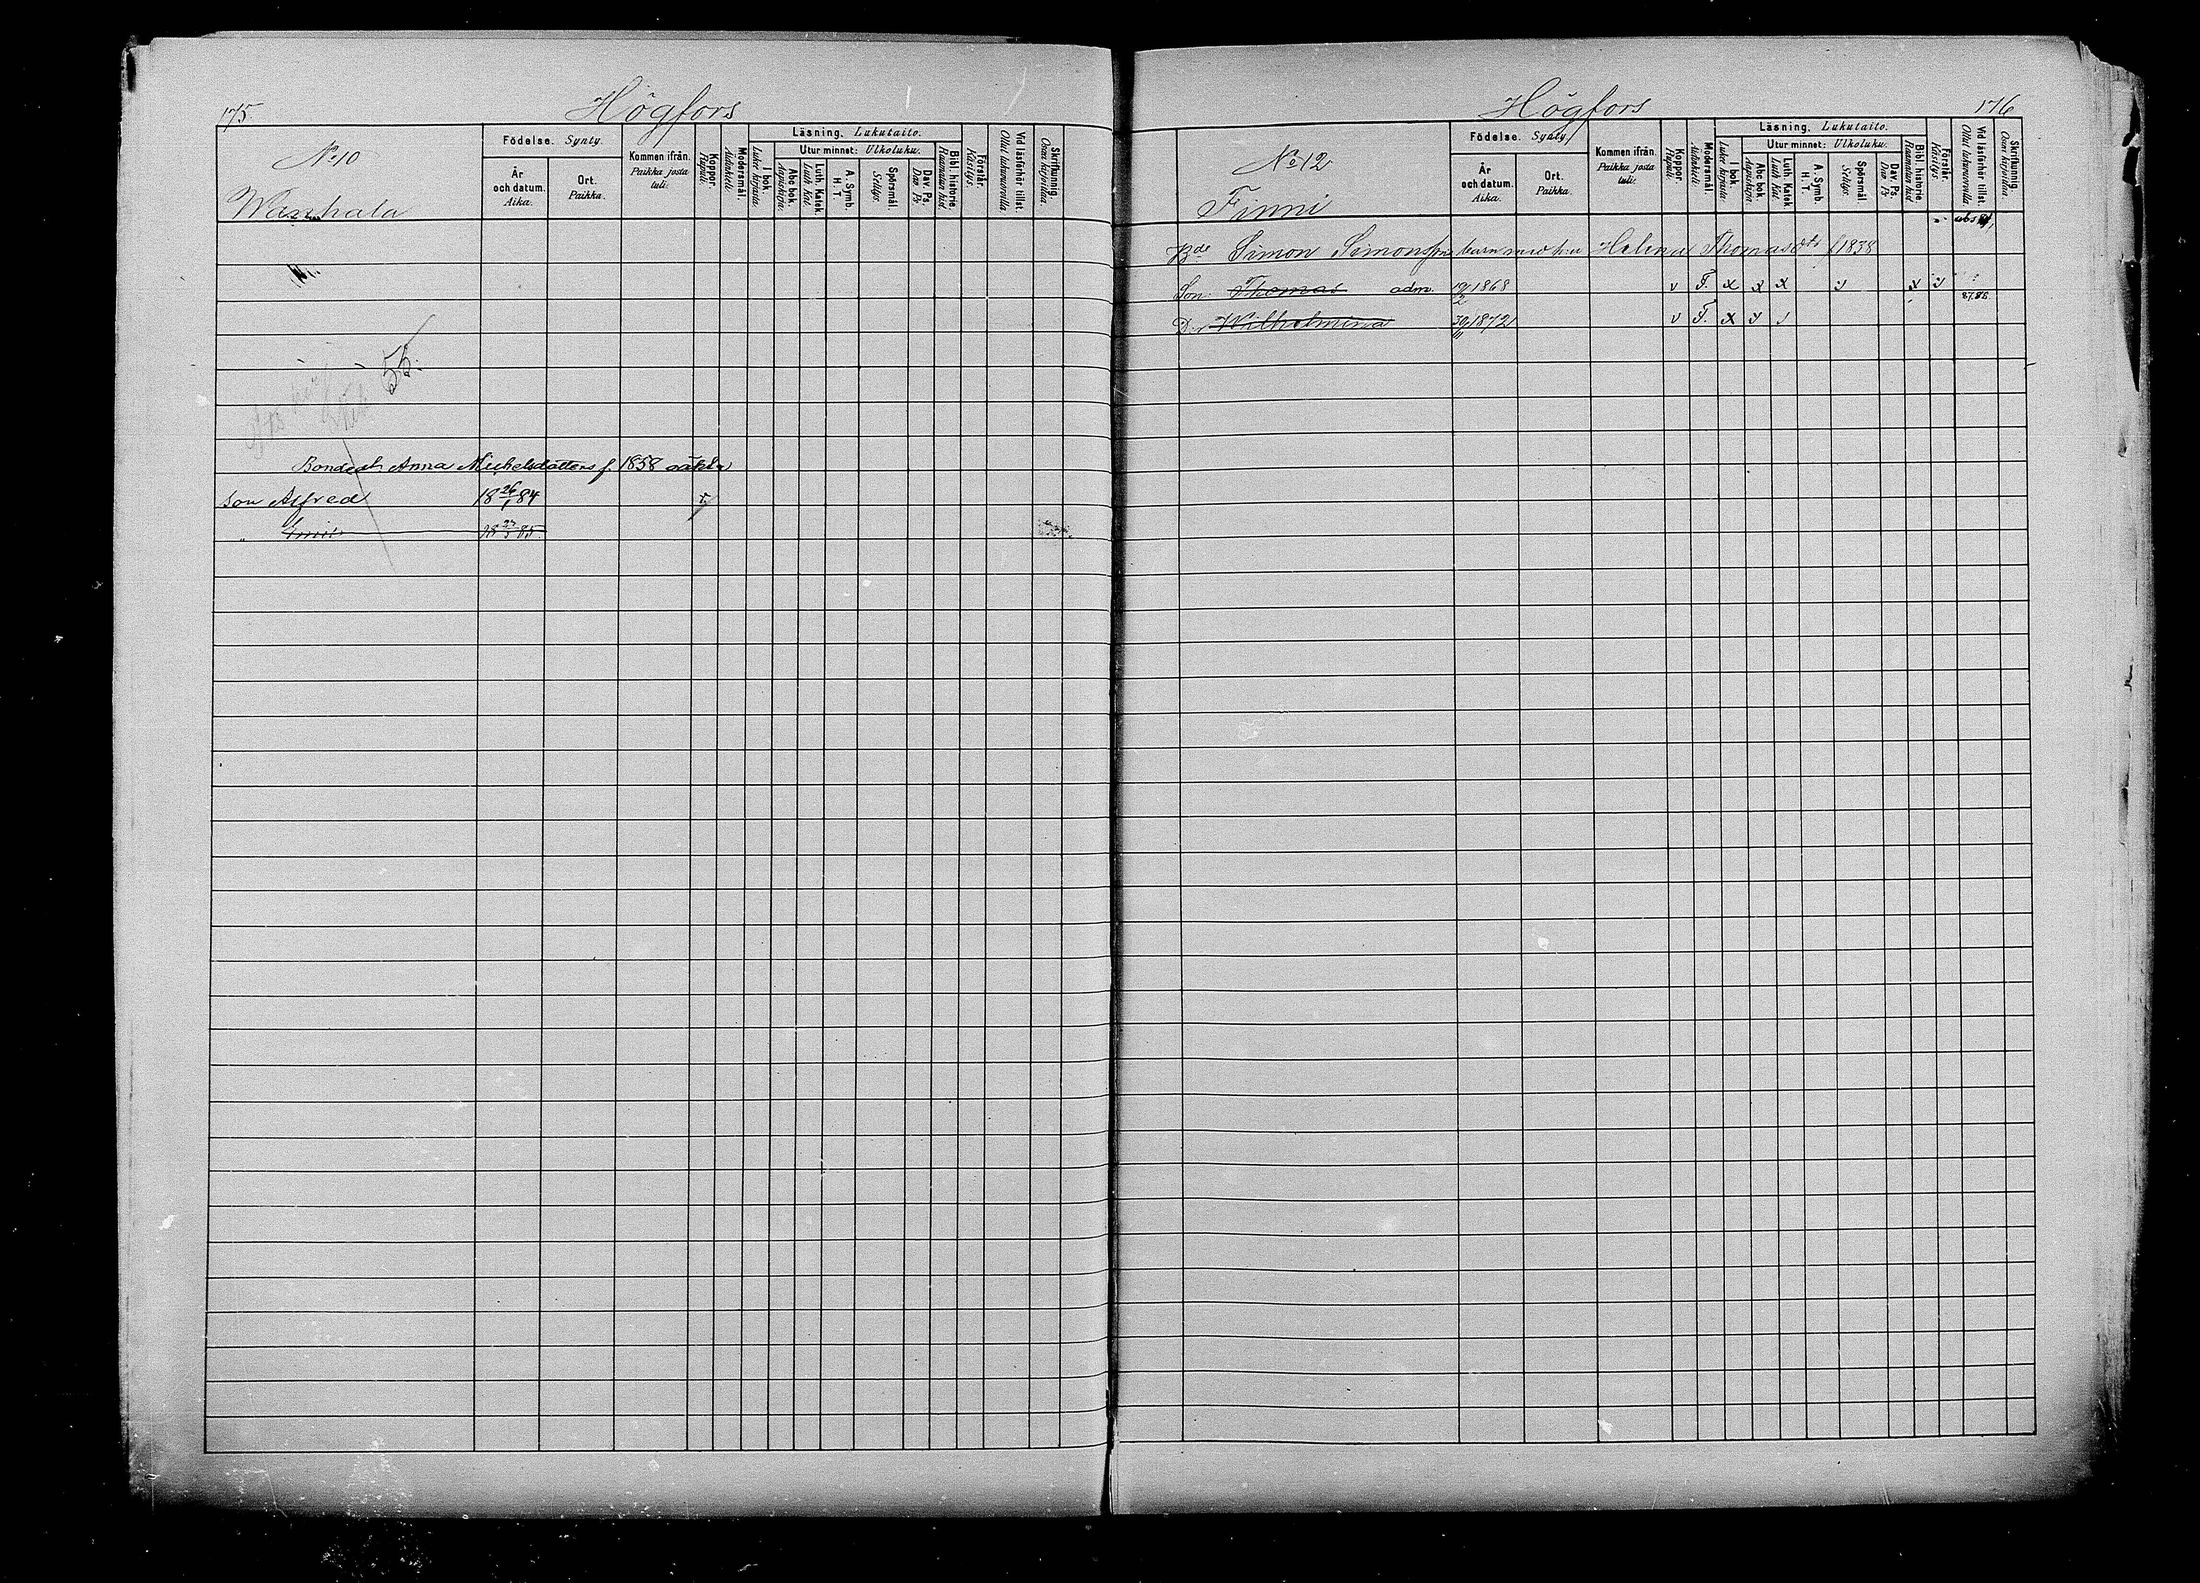 175
Högfors
No 10
Wanhala
Födelse. Synty.
År och datum. Aika.
Ort. Paikka.
Kommen ifrån. Paikka josta tuli.
Koppor. Rupuli.
Modersmål. Äidinkieli
Läsning. Lukutaito.
I bok. Luku kirjasta.
Utur minnet: Ulkoluku.
Abc bok. Aapiskirja.
Luth. Katek. Luth. Kat.
A. Symb. H. T.
Spörsmål. Selitys.
Dav. Ps. Dav. Ps
Bibl. historie. Raamatun hist.
Förstår. Käsitys.
Vid läsförhör tillst. Ollut lukuvuorolla
Skrifkunnig. Osaa kirjoittaa.
55.
Bondedt. Anna Michelsdotters f. 1858 oäkta
Son Alfred 18 26/1 84 v.
" Emil 18 27/5 85.
Högfors
176
No 12
Finni
Födelse. Synty.
År och datum. Aika.
Ort. Paikka.
Kommen ifrån. Paikka josta tuli.
Koppor. Rupuli.
Modersmål. Äidinkieli
Läsning. Lukutaito.
I bok. Luku kirjasta.
Utur minnet: Ulkoluku.
Abc bok. Aapiskirja.
Luth. Katek. Luth. Kat.
A. Symb. H. T.
Spörsmål. Selitys.
Dav. Ps. Dav. Ps
Bibl. historie. Raamatun hist
Förstår. Käsitys.
Vid läsförhör tillst. Ollut lukuvuorolla
Skrifkunnig. Osaa kirjoittaa.
Bde Simon Simonsson barn med h:u Helena Thomasdtr f 1838
Son: Thomas adm. 19/2 1868 v F. x x x y x y
87.88
D:r Wilhelmina 30/11 1872 v F. x y